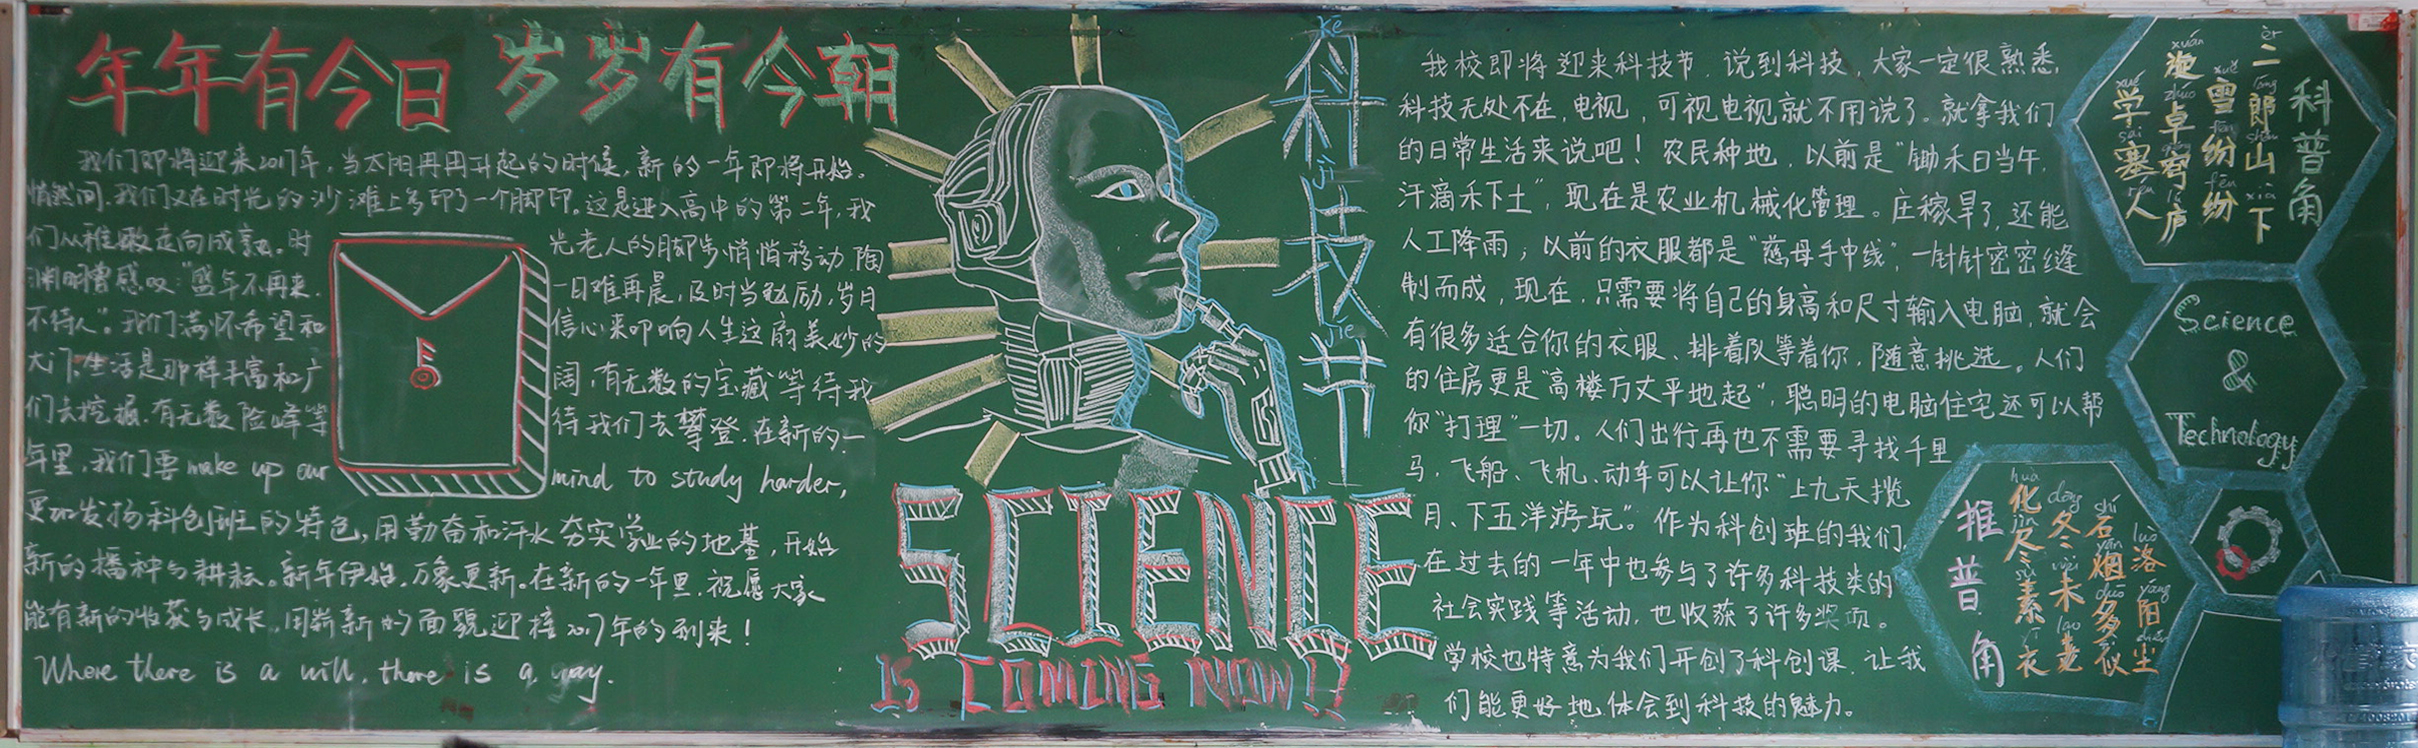 年年有今日 岁岁有今朝
我们即将迎来2017年，当太阳冉冉升起的时候，新的一年即将开始。
悄然间，我们又在时光的沙滩上多印了一个脚印。这是进入高中的第二年，我
们从稚嫩走向成熟。时
光老人的脚步悄悄移动，陶
渊明曾感叹："盛年不再来，
一日难再晨，及时当勉励，岁月
不待人"。我们满怀希望和
信心来叩响人生这扇美妙的
大门，生活是那样丰富和广
阔，有无数的宝藏等待我
们去挖掘，有无数险峰等
待我们去攀登，在新的一
年里，我们要make up our
mind to study harder,
更加发扬科创班的特色，用勤奋和汗水夯实学业的地基，开始
新的播种与耕耘。新年伊始，万象更新。在新的一年里，祝愿大家
能有新的收获与成长，用崭新的面貌迎接2017年的到来！
Where there is a will, there is a way.
kē
科
jì
技
jié
节
SCIENCE
IS COMING NOW!!
我校即将迎来科技节，说到科技，大家一定很熟悉，
科技无处不在，电视，可视电视就不用说了。就拿我们
的日常生活来说吧！农民种地，以前是"锄禾日当午，
汗滴禾下土"，现在是农业机械化管理。庄稼旱了，还能
人工降雨；以前的衣服都是"慈母手中线"，一针针密密缝
制而成，现在，只需要将自己的身高和尺寸输入电脑，就会
有很多适合你的衣服、排着队等着你，随意挑选。人们
的住房更是"高楼万丈平地起"，聪明的电脑住宅还可以帮
你"打理"一切。人们出行再也不需要寻找千里
马，飞船、飞机、动车可以让你"上九天揽
月、下五洋游玩"。作为科创班的我们，
在过去的一年中也参与了许多科技类的
社会实践等活动，也收获了许多奖项。
学校也特意为我们开创了科创课，让我
们能更好地体会到科技的魅力。
科普角
二郎山下
雪纷纷
漩卓窍庐
学塞人
Science
&
Technology
推普角
化尽素衣
冬未老
石烟多似
洛阳尘